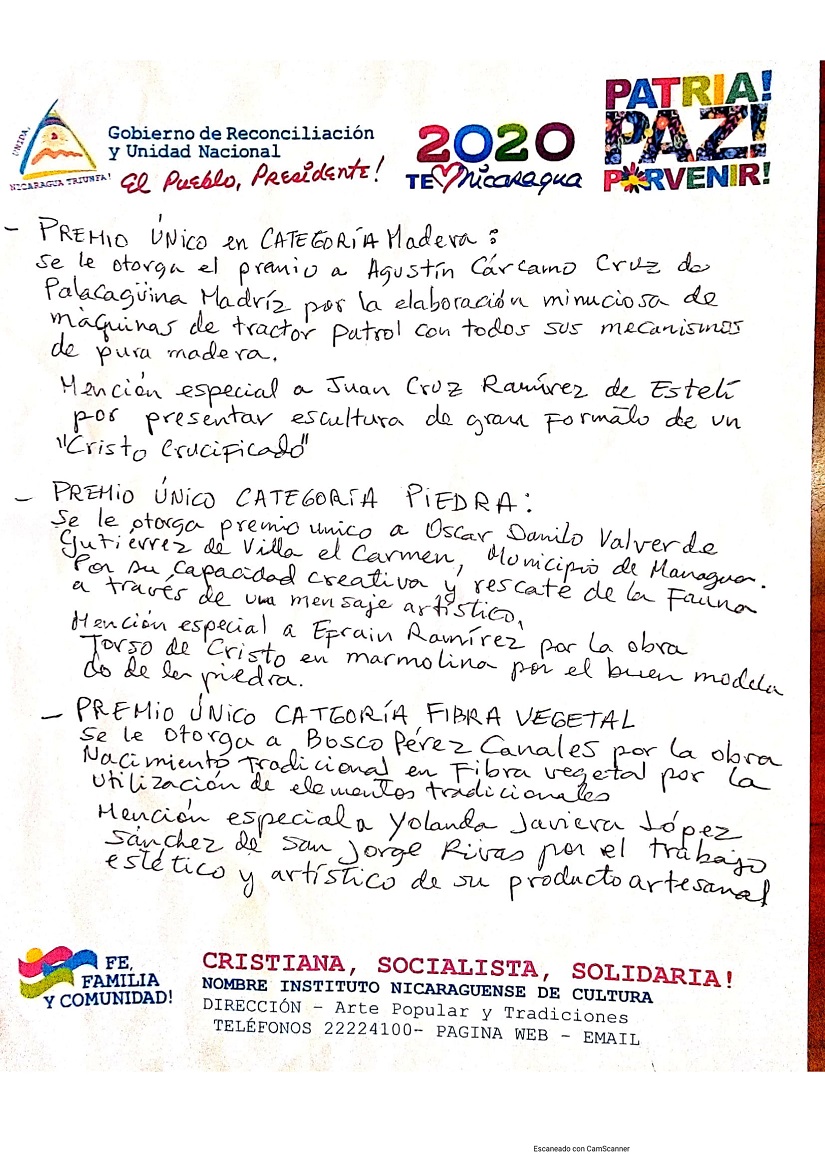 UNIDA,
NICARAGUA TRIUNFA!
Gobierno de Reconciliación
y Unidad Nacional
El Pueblo, Presidente!
2020
TE Nicaragua
PATRIA!
PAZ!
PORVENIR!
- PREMIO ÚNICO en CATEGORÍA Madera:
se le otorga el premio a Agustín Cárcamo Cruz de
Palacagüina Madríz por la elaboración minuciosa de
máquinas de tractor Patrol con todos sus mecanismos
de pura madera.
Mención especial a Juan Cruz Ramírez de Estelí
por presentar escultura de gran formato de un
"Cristo Crucificado"
- PREMIO ÚNICO CATEGORÍA PIEDRA:
Se le otorga premio unico a Oscar Danilo Valverde
Gutiérrez de Villa el Carmen, Municipio de Managua.
Por su capacidad creativa y rescate de la Fauna
a través de un mensaje artístico,
Mención especial a Efrain Ramírez por la obra
Torso de Cristo en marmolina por el buen modela
do de la piedra.
- PREMIO ÚNICO CATEGORÍA FIBRA VEGETAL
Se le otorga a Bosco Pérez Canales por la obra
Nacimiento Tradicional en Fibra vegetal por la
utilización de elementos tradicionales
Mención especial a Yolanda Javiera López
Sánchez de San Jorge Rivas por el trabajo
estético y artístico de su producto artesanal
FE,
FAMILIA
Y COMUNIDAD!
CRISTIANA, SOCIALISTA, SOLIDARIA!
NOMBRE INSTITUTO NICARAGUENSE DE CULTURA
DIRECCIÓN - Arte Popular y Tradiciones
TELÉFONOS 22224100- PAGINA WEB - EMAIL
Escaneado con CamScanner